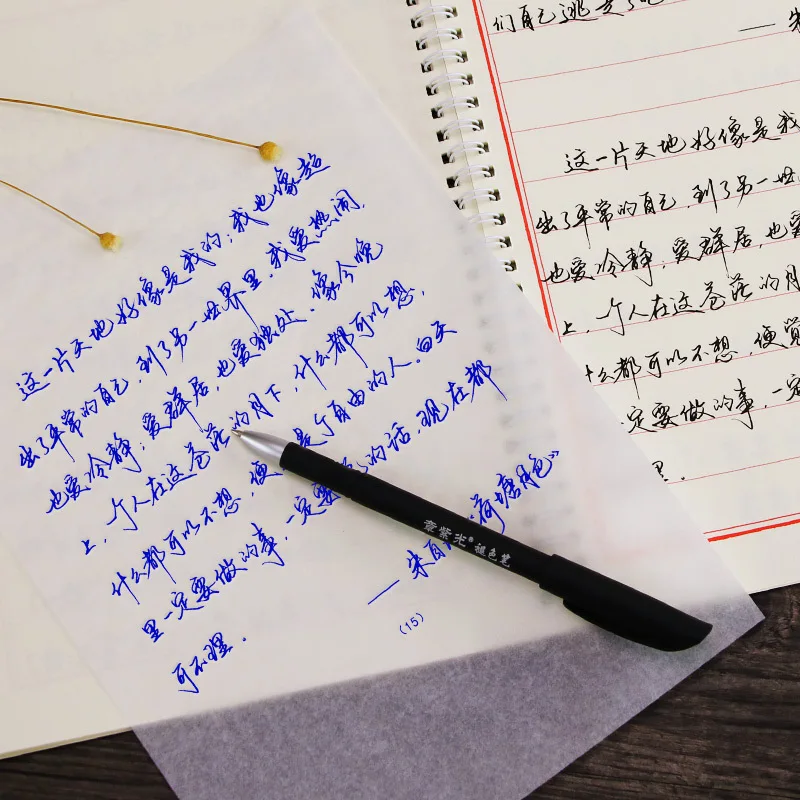 这一片天地好像是我的；我也像超
出了平常的自己，到了另一世界里。我爱热闹，
也爱冷静；爱群居，也爱独处。像今晚
上，一个人在这苍茫的月下，什么都可以想，
什么都可以不想，便是个自由的人。白天
里一定要做的事，一定要的话，现在都
可不理。
——朱自荷塘月色》
(15)
章紫光® 褪色笔
们自己逃走了
——朱
这一片天地好像是我
出了平常的自己，到了另一世
也爱冷静，爱群居，也爱
上，一个人在这苍茫的月
什么都可以不想，便觉
一定要做的事，一定
理。